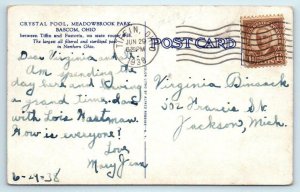 CRYSTAL POOL, MEADOWBROOK PARK,
BASCOM, OHIO
between Tiffin and Fostoria, on state route
The largest all filtered and sterilized pool
in Northern Ohio.
TIFFIN, OHIO
JUN 29
6 PM
1938
POST CARD
Dear Virginia and
Am spending the
day here and having
a grand time. Am
with Lois Wartman.
How is everyone!
Love,
Mary Jean
6-29-38
Virginia Binsack
502 Francis St
Jackson, Mich.